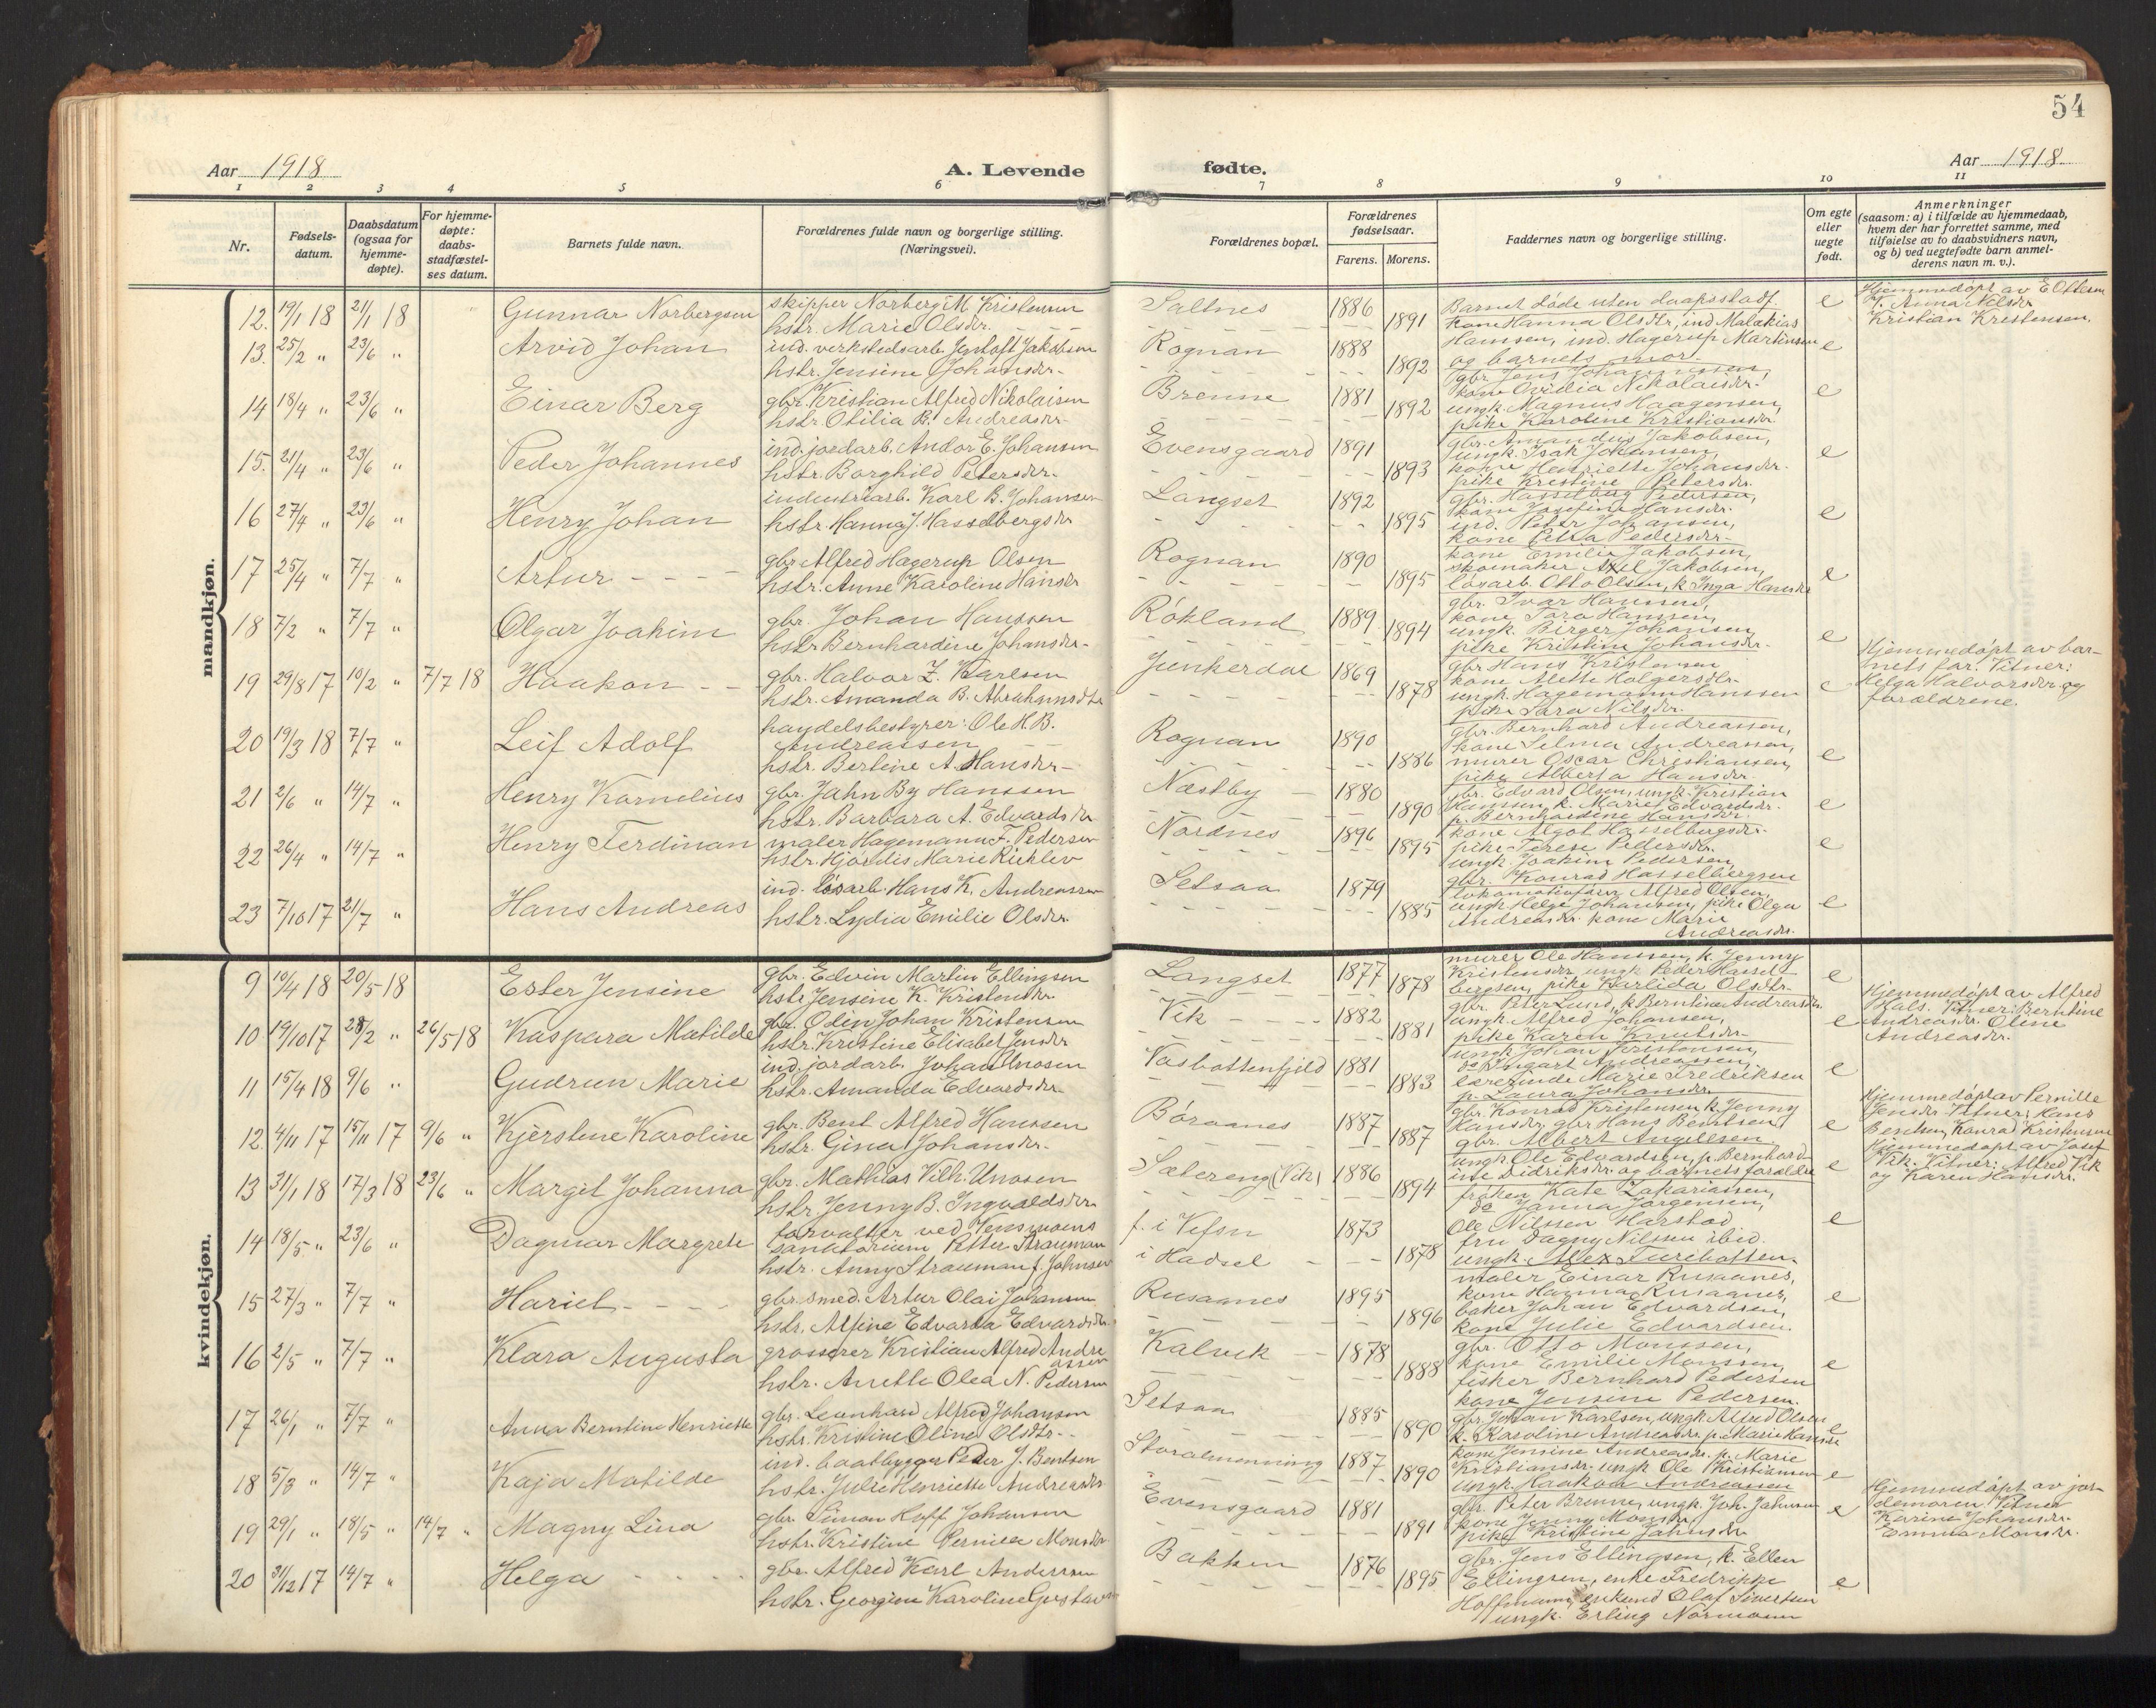 54
Aar 1918
A. Levende
fødte.
Aar 1918
1 2 3 4 5 6 7 8 9 10 11
Nr.
Fødsels-
datum.
Daabsdatum
(ogsaa for
hjemme-
døpte).
For hjemme-
døpte:
daabs-
stadfæstel-
ses datum.
Barnets fulde navn.
Forældrenes fulde navn og borgerlige stilling.
(Næringsvei).
Forældrenes bopæl.
Forældrenes
fødselsaar.
Farens. Morens.
Faddernes navn og borgerlige stilling.
Om egte
eller
uegte
født.
Anmerkninger
(saasom: a) i tilfælde av hjemmedaab,
hvem der har forrettet samme, med
tilføielse av to daabsvidners navn,
og b) ved uegtefødte barn anmel-
derens navn m. v.).
mandkjøn.
12. 19/1 18 21/1 18 Gunnar Norbergsen
skipper Norberg M. Kristensen
hstr. Marie Olsdr.
Saltnes 1886 1891
Barnet døde uten daapsstadf. e
Hjemmedøpt av E Ottesen
V. Anna Nilsdr
Kristian Kristensen.
13. 25/2 " 23/6 " Arvid Johan
ind. verkstedsarb. Jentoft Jakobsen
hstr. Jensine Johansdr.
Rognan 1888 1892
kone Hanna Olsdtr, ind Malakias
Hansen, ind. Hagerup Martinsen e
og barnets mor.
14 18/4 " 23/6 " Einar Berg
gbr. Kristian Alfred Nikolaisen
hstr. Otilia B. Andreasdr.
Brenne 1881 1892
gbr Jens Johannessen,
kone Ovidia Nikolaisdr. e
ungk. Magnus Haagensen,
pike Karoline Kristiansdr
15. 21/4 " 23/6 " Peder Johannes
ind. jordarb. Andor E. Johansen
hstr. Borghild Petersdr.
Evensgaard 1891 1893
gbr. Amandus Jakobsen,
ungk. Isak Johansen, e
kone Henriette Johansdr.
pike Kristine Petersdr.
16 27/4 " 23/6 " Henry Johan
industriarb. Karl G. Johansen
hstr. Hanna J. Hasselbergsdr
Langset 1892 1895
gbr. Hasselberg Pedersen,
kone Josefine Hansdr.
ind. Peter Johansen, e
kone Petra Pedersdr.
17 25/4 " 7/7 " Artur
gbr Alfred Hagerup Olsen
hstr. Anne Karoline Hansdr
Rognan 1890 1895
kone Emilie Jakobsen,
skomaker Axel Jakobsen,
løsarb. Otto Olsen, k. Inga Hansdr e
18 7/2 " 7/7 " Olgar Joakim
gbr. Johan Hanssen
hstr Bernhardine Johansdr.
Røkland 1889 1894
gbr. Ivar Hanssen,
kone Sara Hanssen,
ungk. Birger Johansen e
pike Kristine Johansdr.
19 29/8 17 10/2 " 7/7 18 Haakon
gbr. Halvor Z. Karlsen
hstr. Amanda B. Abrahamsdtr
Junkerdal 1869 1878
gbr Hans Kristensen
kone Alette Holgersdtr
ungk. Hagemann Hanssen e
pike Sara Nilsdr.
Hjemmedøpt av bar-
nets far. Vitner:
Helga Halvorsdr. og
forældrene.
20 19/3 18 7/7 " Leif Adolf
handelsbestyrer Ole H. B.
Andreassen
hstr. Berline A. Hansdr
Rognan 1890 1886
gbr. Bernhard Andreassen,
kone Selma Andreassen,
murer Oscar Christiansen, e
pike Alberta Hansdr.
21 2/6 " 14/7 " Henry Kornelius
gbr. Jahn By Hanssen
hstr. Barbara A. Edvardsdr
Næstby 1880 1890
gbr. Edvard Olsen, ungk. Kristian
Hanssen, k. Mariet Edvardsdr. e
p. Bernhardine Hansdr.
22 26/4 " 14/7 " Henry Ferdinan
maler Hagemann F. Pedersen
hstr. Hjørdis Marie
Nordnes 1896 1895
kone Algot Hasselbergsdr.
pike Terese Pedersdr. e
ungk. Joakim Pedersen,
gbr. Konrad Hasselbergsen
23 7/10 17 21/7 " Hans Andreas
ind. løsarb. Hans K. Andreassen
hstr. Lydia Emilie Olsdr.
Setsaa 1879 1885
lokomotivfører Alfred Olsen,
ungk Helge Johansen, pike Olga e
Andreasdr. kone Marie
Andreasdr.
kvindekjøn.
9 10/4 18 20/5 18 Ester Jensine
gbr. Edvin Martin Ellingsen
hstr Jensine K. Kristensdr.
Langset 1877 1878
murer Ole Hanssen, k. Jenny
Kristensdr, ungk Peder Hassel- e
bergsen, pike Karlida Olsdtr.
10. 19/10 17 28/2 " 26/5 18 Kaspara Matilde
gbr. Odin Johan Kristensen
hstr. Kristine Elisabet Jensdr
Vik 1882 1881
gbr. Peter Lund, k Berntine Andreasdr
ungk. Alfred Johansen, e
pike Karen Knutsdr
Hjemmedøpt av Alfred
Hals. Vitner: Berntine
Andreasdr. Oline
Andreasdr.
11 15/4 18 9/6 " Gudrun Marie
ind. jordarb. Johan Unosen
hstr. Amanda Edvardsdr
Vasbottenfjeld 1881 1883
ungk Johan Kristensen,
do Ingart Andreassen, e
lærerinde Marie Fredriksen
p. Laura Johansdr.
12. 4/11 17 15/11 17 9/6 " Kjerstene Karoline
gbr. Bent Alfred Hanssen
hstr. Gina Johansdr.
Boraanes 1887 1887
gbr. Konrad Kristensen k. Jenny
Hansdr, gbr Hans Bentsen e
gbr. Albert Angellsen
Hjemmedøpt av Pernille
Jensdr. Vitner: Hans
Bentsen, Konrad Kristensen
13 31/1 18 17/3 18 23/6 " Margit Johanna
gbr. Mathias Vilh. Unosen
hstr. Jenny B. Ingvaldsdr.
Sætereng (Vik) 1886 1894
ungk. Ole Edvardsen, p. Bernhard-
ine Didriksdr. og barnets forældre e
Hjemmedøpt av Josef
Vik. Vitner: Alfred Vik
og Karen Hansdr.
14 18/5 " 23/6 " Dagmar Margrete
forvalter ved Vensmoens
sanatorium Petter Strauman
hstr. Anny Strauman f. Johnsen
f. i Vefsn 1873
i Hadsel 1878
frøken Kate Zakariassen,
do Janna Jørgensen,
Ole Nilssen Harstad e
fru Dagny Nilssen ibid.
ungk. Alex Turehoffsen.
15 27/3 " 7/7 " Hariet
gbr. smed. Artur Olai Johansen
hstr. Alfine Edvarda Edvardsdr.
Rusaanes 1895 1896
maler Einar Rusaanes,
kone Hanna Rusaanes, e
baker Johan Edvardsen,
kone Julie Edvardsen.
16 2/5 " 7/7 " Klara Augusta
grosserer Kristian Alfred Andre
assen
hstr. Anette Olea N. Pedersen
Kalvik 1878 1888
gbr. Otto Monssen,
kone Emilie Monssen, e
fisker Bernhard Pedersen
kone Jensine Pedersen.
17 26/1 " 7/7 " Anna Berntine Henriette
gbr. Leonhard Alfred Johansen
hstr. Kristine Oline Olsdtr.
Setsaa 1885 1890
gbr. Johan Karlsen, ungk. Alfred Olsen
k. Karoline Andreasdr. p. Marie Hansdr e
18 5/3 " 14/7 " Kaja Matilde
ind. baatbygger Peder J. Bentsen
hstr. Julie Henriette Andreasdr
Storalmenning 1887 1890
kone Jensine Andreasdr. p. Marie
Kristiansdr. ungk Ole Kristiansen e
ungk. Haakon Andreassen
19 29/1 " 18/5 " 14/7 " Magny Lina
gbr. Simon Hoff Johansen
hstr. Kristine Pernilla Monsdr
Evensgaard 1881 1891
gbr. Peter Brenne, ungk. Joh. Jahnsen
kone Jenny Monsdr. e
pike Kristine Jahnsdr.
Hjemmedøpt av jor-
demoren. Vitner
Karine Johnsdr.
Emma Monsdr.
20 31/12 17 14/7 " Helga
gbr. Alfred Karl Andersen
hstr. Georgine Karoline
Bakken 1876 1895
gbr. Jens Ellingsen, k. Ellen
Ellingsen, enke Fredrikke e
Hoffmann, enkemd Olaf Sivertsen
ungk. Erling Normann